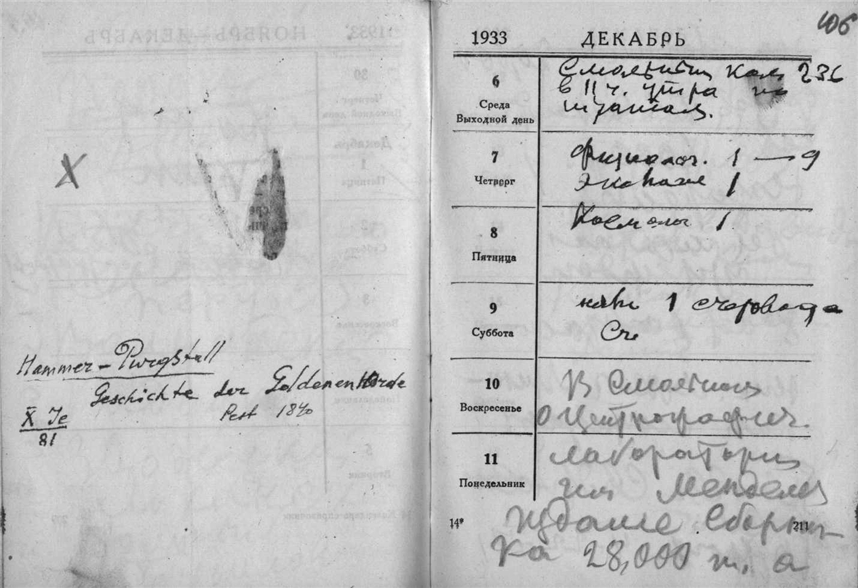 X
Hammer-Purgstall
Geschichte der Goldenen Horde
Pest 1840
X Je
81
106
1933 ДЕКАБРЬ
6
Среда
Выходной день
236
в 11 ч. утра
7
Четверг
Физиолог. 1 — 9
1
8
Пятница
Космолог 1
9
Суббота
1
Сч
10
Воскресенье
В
О Центрографич.
11
Понедельник
лаборатории
им Менделеева
Издание Сборни-
ка 28,000 т. а
14*
211